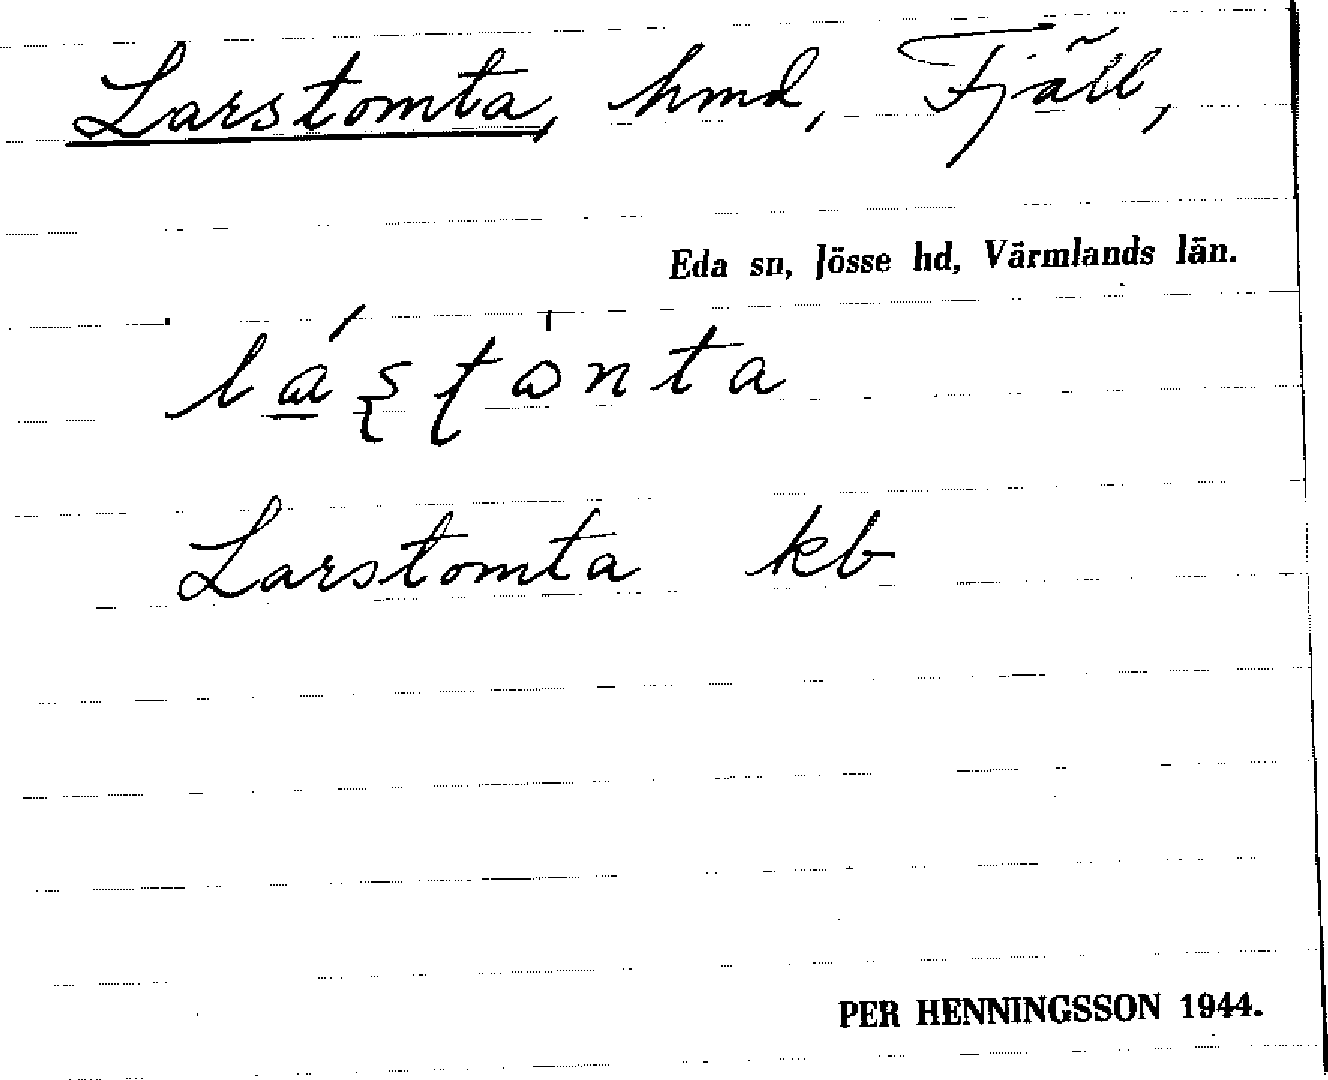 Larstomta, hmd, Fjäll,
Eda sn, Jösse hd, Värmlands län.
lá̲ʂʈɔ̍nta
Larstomta kb
PER HENNINGSSON 1944.